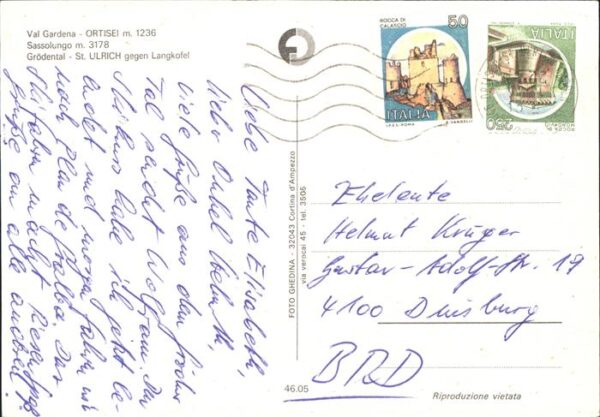 Val Gardena - ORTISEI m. 1236
Sassolungo m. 3178
Grödental - St. ULRICH gegen Langkofel
Liebe Tante Elisabeth,
lieber Onkel Helmut,
viele Grüße aus dem Grödner
Tal sendet Wolfram. Den
Skikurs habe ich jetzt be-
endet und morgen fahren wir
nach Plan de Gralba. Das
Skifahren macht Riesenspaß
Grüße an alle anderen!
FOTO GHEDINA - 32043 Cortina d'Ampezzo
via verocai 45 - tel. 3505
46.05
ROCCA DI CALASCIO
50
ITALIA
I.P.Z.S. ROMA
E. VANGELLI
ITALIA
250
Eheleute
Helmut Krüger
Gustav-Adolf-Str. 19
4100 Duisburg
BRD
Riproduzione vietata